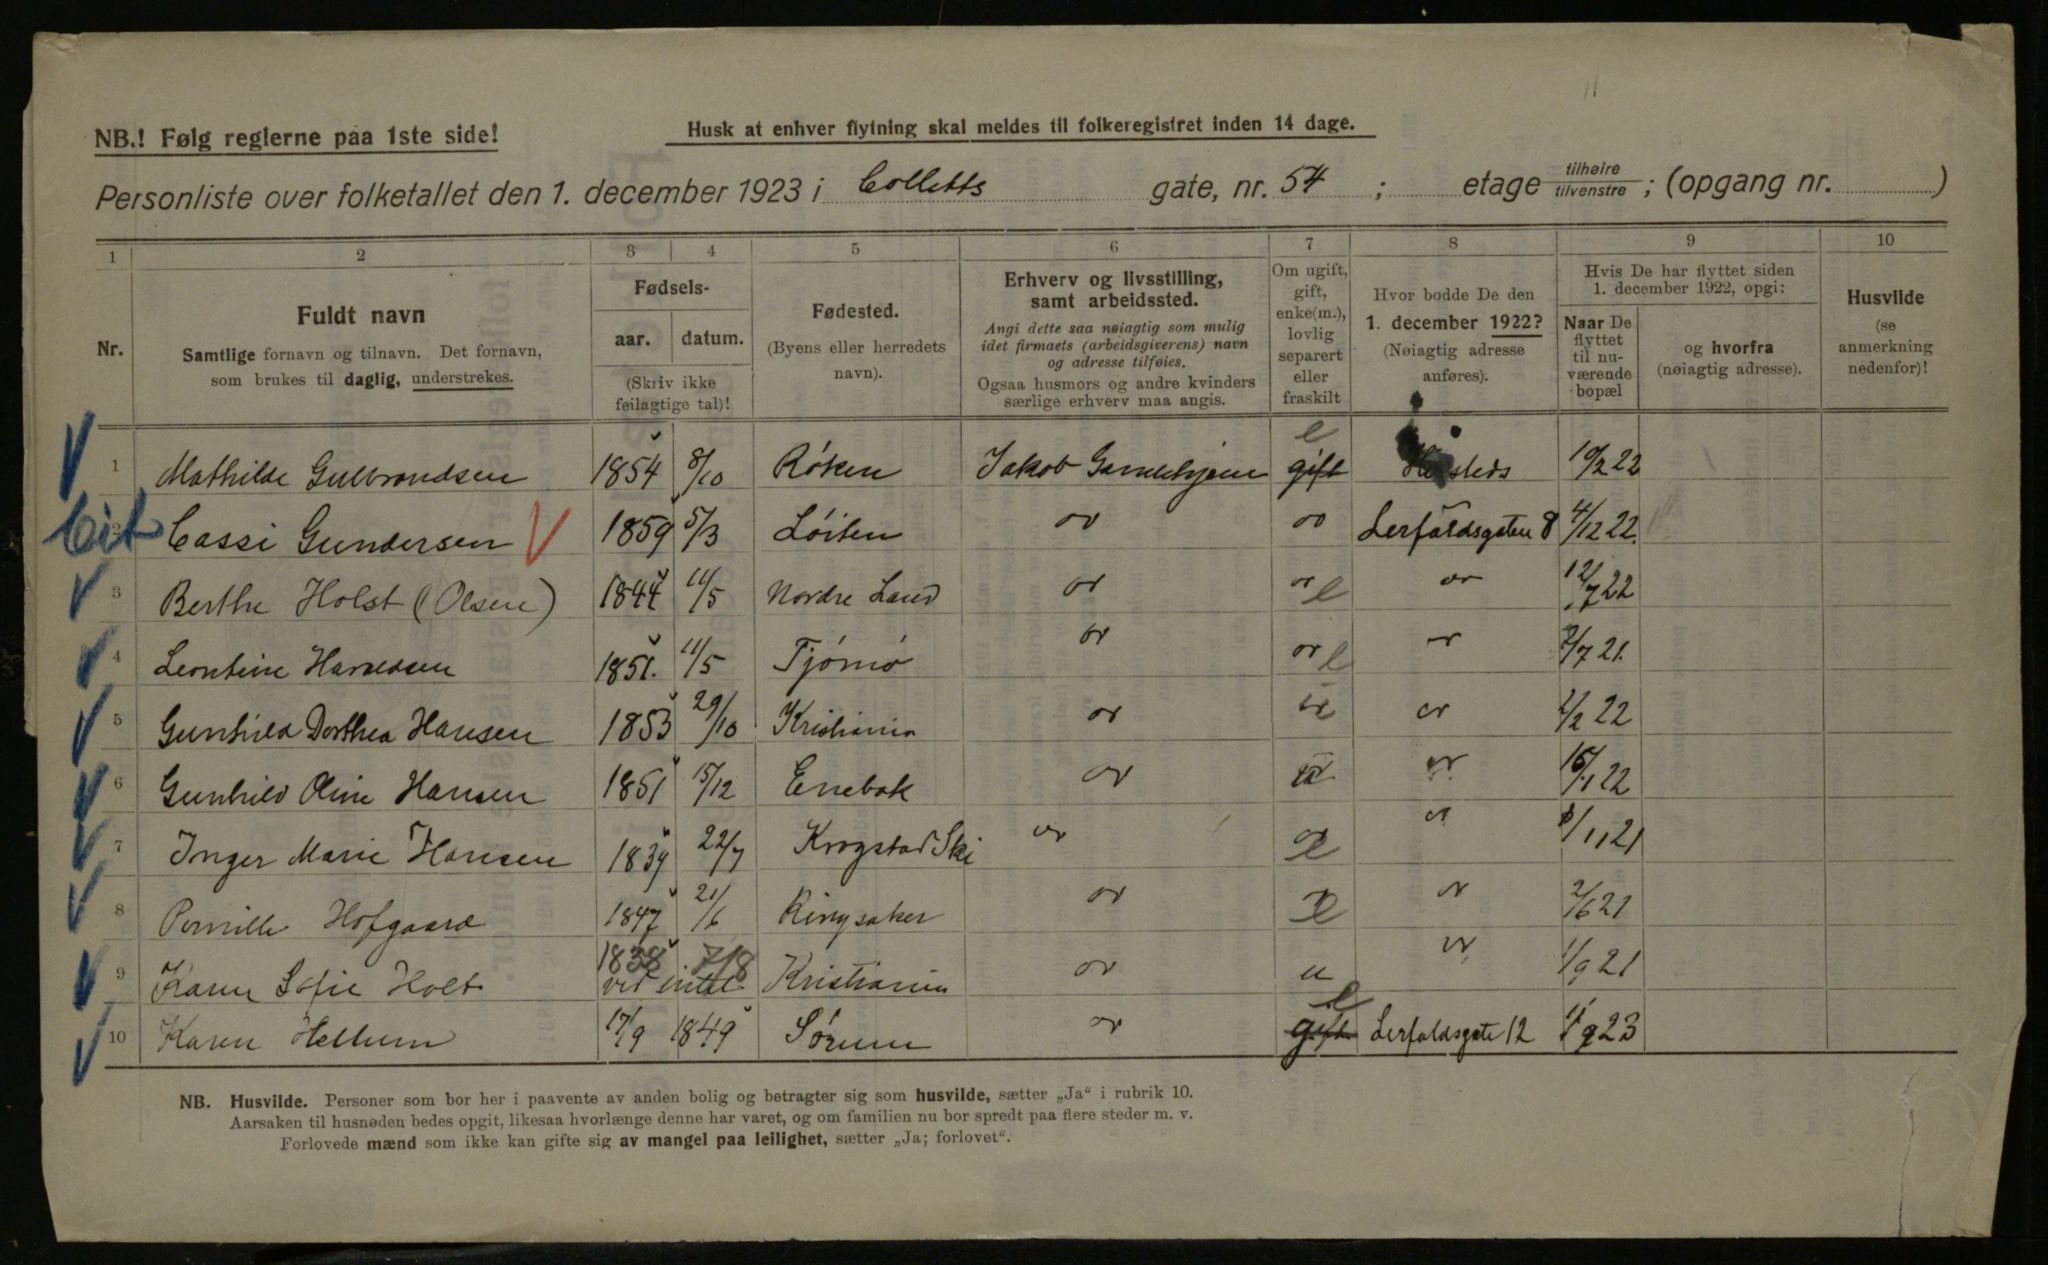 NB.! Følg reglerne paa 1ste side!
Husk at enhver flytning skal meldes til folkeregistret inden 14 dage.
Personliste over folketallet den 1. december 1923 i Colletts gate, nr. 54 ; etage tilhøire tilvenstre ; (opgang nr. )
1 2 3 4 5 6 7 8 9 10
Nr.
Fuldt navn
Samtlige fornavn og tilnavn. Det fornavn,
som brukes til daglig, understrekes.
Fødsels-
aar. datum.
(Skriv ikke
feilagtige tal)!
Fødested.
(Byens eller herredets
navn).
Erhverv og livsstilling,
samt arbeidssted.
Angi dette saa nøiagtig som mulig
idet firmaets (arbeidsgiverens) navn
og adresse tilføies.
Ogsaa husmors og andre kvinders
særlige erhverv maa angis.
Om ugift,
gift,
enke(m.),
lovlig
separert
eller
fraskilt
Hvor bodde De den
1. december 1922?
(Nøiagtig adresse
anføres).
Hvis De har flyttet siden
1. december 1922, opgi:
Naar De
flyttet
til nu-
værende
bopæl
og hvorfra
(nøiagtig adresse).
Husvilde
(se
anmerkning
nedenfor)!
1 Mathilde Gulbrandsen 1854 8/10 Røken Jakob Gamlehjem gift e 10/2 22
2 Cassi Gundersen 1859 5/3 Løiten " " Lerfaldsgaten 8 4/12 22.
3 Berthe Holst (Olsen) 1844 11/5 Nordre Land " " e " 12/7 22
4 Leontine Haraldsen 1851. 11/5 Tjømø " " e " 2/7 21.
5 Gunhild Dorthea Hansen 1853 29/10 Kristiania " e " 1/2 22
6 Gunhild Oline Hansen 1851 15/12 Enebak " " 22
7 Inger Marie Hansen 1839 22/7 Krogstad Ski " e " /11 21
8 Pernille Hofgaard 1847 21/6 Ringsaker " e " 2/6 21
9 Karen Sofie Holt 1838 7/8 Kristiania " u " 1/9 21
10 Karen Hellum 17/9 1849 Sørum " gift e Lerfaldsgate 12 1/9 23
NB. Husvilde. Personer som bor her i paavente av anden bolig og betragter sig som husvilde, sætter „Ja“ i rubrik 10.
Aarsaken til husnøden bedes opgit, likesaa hvorlænge denne har varet, og om familien nu bor spredt paa flere steder m. v.
Forlovede mænd som ikke kan gifte sig av mangel paa leilighet, sætter „Ja; forlovet“.